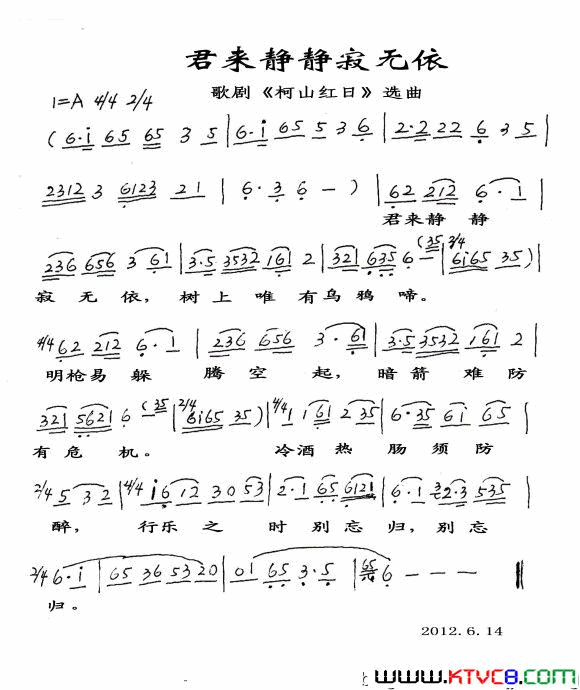 君来静静寂无依
歌剧《柯山红日》选曲
1=A 4/4 2/4
(6·i 65 65 3 5 | 6·i 65 5 3 6 | 2·2 22 6 3 5 |
2312 3 6123 21 | 6·36 — ) | 62 212 6·1 |
君来静 静
236 656 3 61 | 3·5 3532 161 2 | 321 635 6 — (35 2/4 | 6i65 35) |
寂 无 依， 树 上 唯 有 乌 鸦 啼。
4/4 62 212 6·1 | 236 656 3·61 | 3·5 3532 161 2 |
明枪易 躲 腾 空 起， 暗 箭 难 防
321 5621 6 (35 | 2/4 6i65 35) | 4/4 1 161 2 35 | 6·35 6i 65 |
有 危 机。 冷 酒 热 肠 须 防
2/4 5 32 | 4/4 i612 30 53 | 2·1 65 6121 | 6·1 32·3 535 |
醉， 行 乐 之 时 别 忘 归， 别 忘
2/4 6·i | 65 36 53 20 | 01 65 3·5 | 65 6 — — — ‖
归。
2012.6.14
WWW.KTVC8.COM